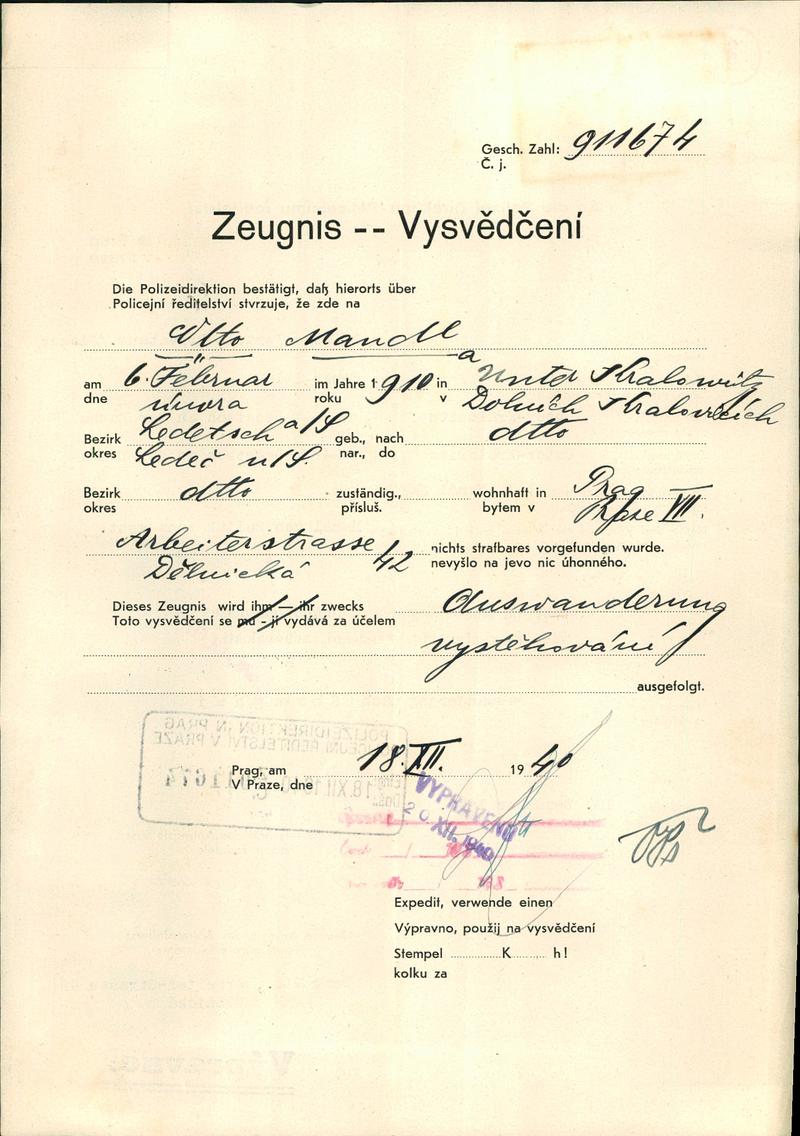 Gesch. Zahl: 911674
Č. j.
Zeugnis -- Vysvědčení
Die Polizeidirektion bestätigt, daß hierorts über
Policejní ředitelství stvrzuje, že zde na
Otto Mandl
am 6. Februar im Jahre 1910 in Unter Kralowitz
dne února roku v Dolních Kralovicích
Bezirk Ledetsch a/S geb., nach dtto
okres Ledeč n/S. nar., do
Bezirk dtto zuständig., wohnhaft in Prag
okres přísluš. bytem v Praze VII.
Arbeiterstrasse 42 nichts strafbares vorgefunden wurde.
Dělnická nevyšlo na jevo nic úhonného.
Dieses Zeugnis wird ihm — ihr zwecks Auswanderung
Toto vysvědčení se mu - jí vydává za účelem
vystěhování
ausgefolgt.
POLIZEIDIREKTION IN PRAG
POLICEJNÍ ŘEDITELSTVÍ V PRAZE
Prag, am 18. XII. 1940
V Praze, dne
VYPRAVENO
20. XII. 1940
Expedit, verwende einen
Výpravno, použij na vysvědčení
Stempel K h!
kolku za